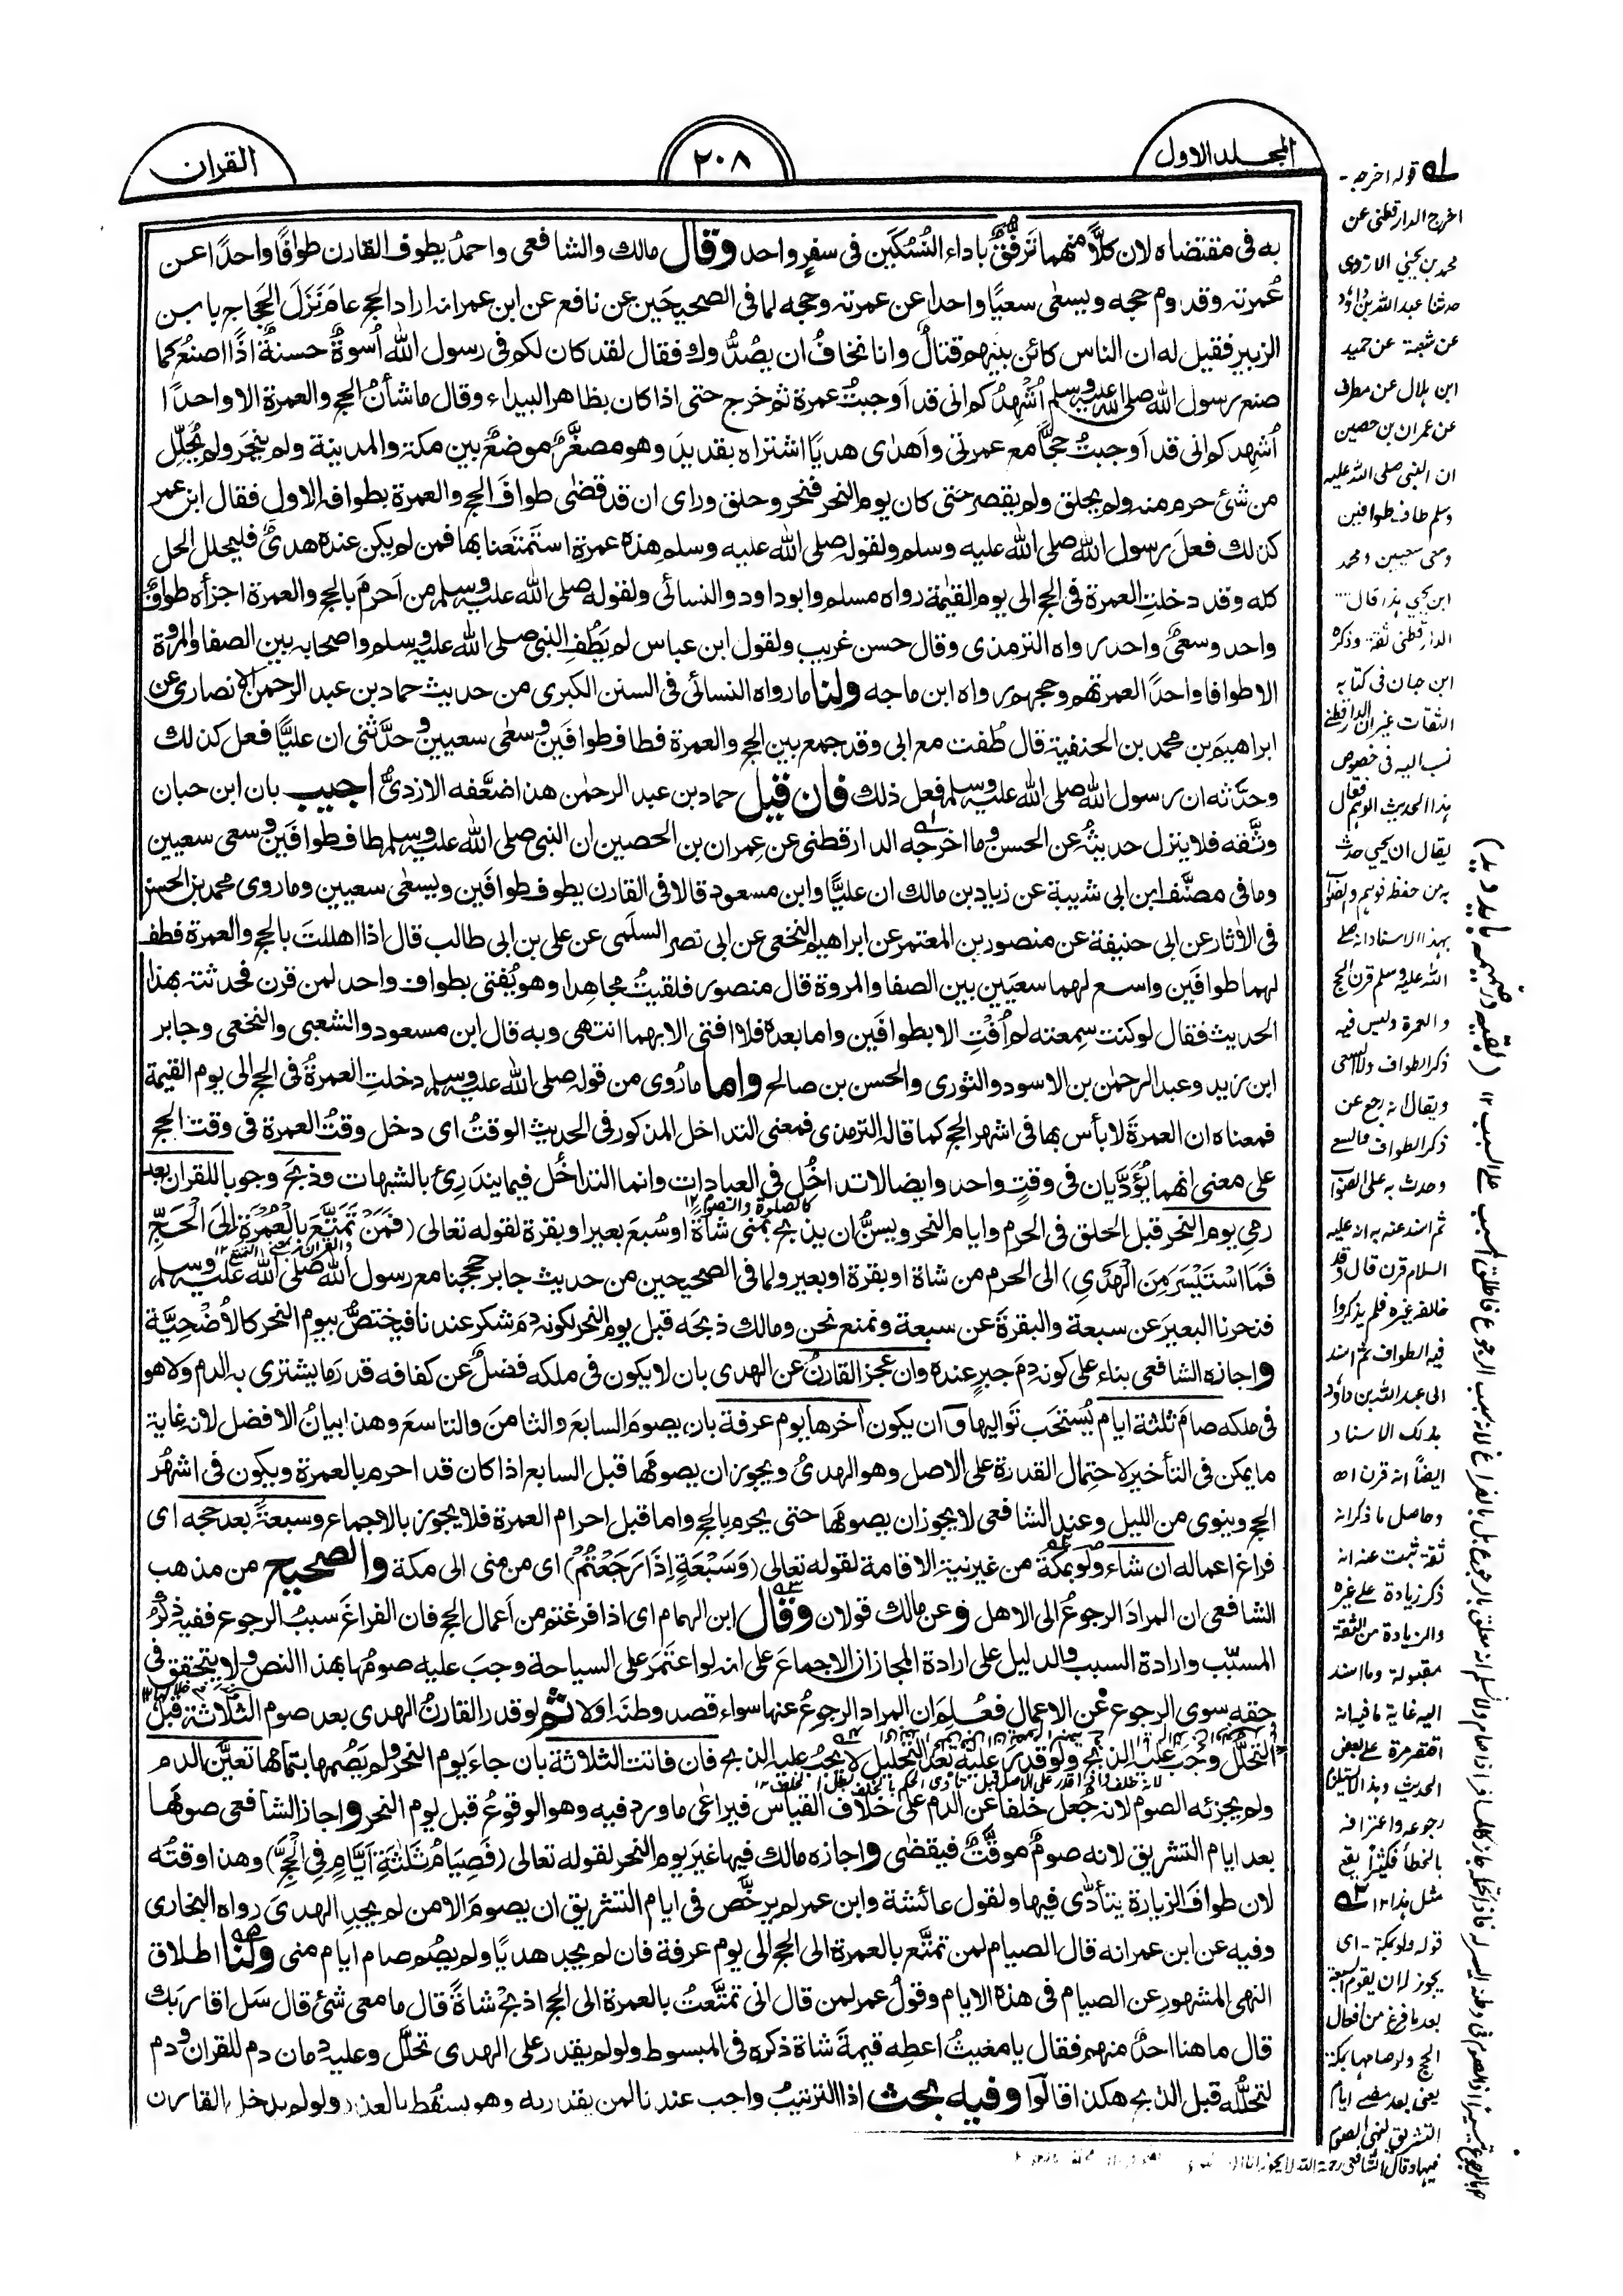 المجلد الاول
٢٠٨
القران
به فى مقتضاه لان كلًّا منهما تَرَفُّقٌ باداء النُّسُكَين فى سفرٍ واحد وقال مالك والشافعى واحمدُ يطوف القارن طوافًا واحدًا عن
عُمرته وقدوم حجه ويسعٰى سعيًا واحدا عن عمرته وحجه لما فى الصحيحَين عن نافع عن ابن عمر انه اراد الحج عامَ نَزَلَ الحَجاج بابن
الزبير فقيل له ان الناس كائن بينهم قتالٌ وانا نخافُ ان يصُدُّوك فقال لقد كان لكم فى رسول الله اُسوةٌ حسنةٌ اذًا اصنعُ كما
صنع رسول الله صلى الله عليه وسلم اُشْهِدُكم انى قد اَوجبتُ عمرة ثم خرج حتى اذا كان بظاهر البيداء وقال ما شأنُ الحج والعمرة الا واحدًا
اُشهدكم انى قد اَوجبتُ حجًّا مع عمرتى واَهدٰى هديًا اشتراه بقديدَ وهو مصغَّرٌ موضعٌ بين مكة والمدينة ولم ينحر ولم يُحِلِّل
من شئ حرم منه ولم يحلق ولم يقصر حتى كان يوم النحر فنحر وحلق وراى ان قد قضٰى طوافَ الحج والعمرة بطوافه الاول فقال ابن عمر
كذلك فعلَ رسول الله صلى الله عليه وسلم ولقوله صلى الله عليه وسلم هذه عمرة استَمتَعنا بها فمن لم يكن عنده هدىٌ فليحلل الحل
كله وقد دخلتِ العمرة فى الحج الى يوم القيٰمة رواه مسلم وابوداود والنسائى ولقوله صلى الله عليه وسلم من اَحرمَ بالحج والعمرة اجزأه طوافٌ
واحد وسعىٌ واحد رواه الترمذى وقال حسن غريب ولقول ابن عباس لم يَطُفِ النبى صلى الله عليه وسلم واصحابه بين الصفا والمروة
الا طوافا واحدًا لعمرتهم وحجهم رواه ابن ماجه ولنا ما رواه النسائى فى السنن الكبرى من حديث حماد بن عبد الرحمٰن الانصارى عن
ابراهيم بن محمد بن الحنفية قال طُفت مع ابى وقد جمع بين الحج والعمرة فطاف طوافَين وسعٰى سعيين وحدَّثنى ان عليًّا فعل كذلك
وحدَّثه ان رسول الله صلى الله عليه وسلم فعل ذلك فان قيل حماد بن عبد الرحمٰن هذا ضعَّفه الازدىُّ اجيب بان ابن حبان
وثَّقه فلا ينزل حديثُه عن الحسن وما اخرجه الدارقطنى عن عِمران بن الحصين ان النبى صلى الله عليه وسلم طاف طوافَين وسعى سعيين
وما فى مصنَّف ابن ابى شيبة عن زياد بن مالك ان عليًّا وابن مسعود قالا فى القارن يطوف طوافَين ويسعٰى سعيين وما روى محمد بن الحسن
فى الآثار عن ابى حنيفة عن منصور بن المعتمر عن ابراهيم النخعى عن ابى نصر السلَمى عن على بن ابى طالب قال اذا اهللتَ بالحج والعمرة فطف
لهما طوافَين واسع لهما سعيَين بين الصفا والمروة قال منصور فلقيتُ مجاهدا وهو يُفتى بطواف واحد لمن قرن فحدثته بهذا
الحديث فقال لو كنت سمعته لم اُفْتِ الا بطوافَين واما بعدَه فلا افتى الا بهما انتهى وبه قال ابن مسعود والشعبى والنخعى وجابر
ابن زيد وعبد الرحمٰن بن الاسود والثورى والحسن بن صالح واما ما رُوى من قوله صلى الله عليه وسلم دخلتِ العمرةُ فى الحج الى يوم القيمة
فمعناه ان العمرةَ لا بأس بها فى اشهر الحج كما قاله الترمذى فمعنى التداخل المذكور فى الحديث الوقتُ اى دخل وقتُ العمرة فى وقت الحج
على معنى انهما يُؤَدَّيان فى وقتٍ واحد وايضا لا تداخُل فى العبادات وانما التداخُل فيما يندرئ بالشبهات وذبحَ وجوبا للقران بعد
كالصلوة والصوم ١٢
رمى يوم النحر قبل الحلق فى الحرم وايام النحر ويسنُّ ان يذبح بمنى شاةً او سُبعَ بعير او بقرة لقوله تعالى (فَمَنْ تَمَتَّعَ بِالْعُمْرَةِ اِلَى الْحَجِّ
فَمَا اسْتَيْسَرَ مِنَ الْهَدْيِ) الى الحرم من شاة او بقرة او بعير ولما فى الصحيحين من حديث جابر حججنا مع رسول الله صلى الله عليه وسلم
فنحرنا البعيرَ عن سبعة والبقرةَ عن سبعة ونمنع نحن ومالك ذبحَه قبل يوم النحر لكونه دمَ شكر عندنا فيختصُّ بيوم النحر كالاُضْحِيَّة
واجازه الشافعى بناء على كونه دمَ جبرٍ عنده وان عجز القارنُ عن الهدى بان لا يكون فى ملكه فضلٌ عن كفافه قدرَ ما يشترى به الدم ولا هو
فى ملكه صامَ ثلثة ايام يُستحَب تَواليها وَان يكون آخرها يوم عرفة بان يصومَ السابعَ والثامنَ والتاسعَ وهذا بيانُ الافضل لانه غاية
ما يمكن فى التأخير لاحتمال القدرة على الاصل وهو الهدىُ ويجوز ان يصومَها قبل السابع اذا كان قد احرم بالعمرة ويكون فى اشهُر
الحج وينوى من الليل وعند الشافعى لا يجوز ان يصومَها حتى يحرم بالحج واما قبل احرام العمرة فلا يجوز بالاجماع وسبعةً بعد حجه اى
فراغ اعماله ان شاء ولو بمكةَ من غير نية الاقامة لقوله تعالى (وَسَبْعَةٍ اِذَا رَجَعْتُمْ) اى من منى الى مكة والصحيح من مذهب
الشافعى ان المرادَ الرجوعُ الى الاهل وعن مالك قولان وقال ابن الهمام اى اذا فرغتم من اَعمال الحج فان الفراغَ سببُ الرجوع ففيه ذِكْرُ
المسبَّب وارادة السبب والدليل على ارادة المجاز ان الاجماعَ على انه لو اعتمَرَ على السياحة وجبَ عليه صومُها بهذا النص ولا يتحقق فى
حقه سوى الرجوع عن الاعمال فعُلم ان المراد الرجوعُ عنها سواء قصد وطنَه او لا ثم لو قدر القارنُ الهدى بعد صوم الثلاثة قبلَ
التحلُّل وجب عليه الذبح ولو قدر عليه بعد التحليل لا يجبُ عليه الذبح فان فاتت الثلاثة بان جاءَ يوم النحر ولم يَصُمها بتمامها تعيَّن الدم
ولم يجزئه الصوم لانه جُعل خلفًا عن الدم على خلاف القياس فيراعٰى ما ورد فيه وهو الوقوعُ قبل يوم النحر واجاز الشافعى صومَها
بعد ايام التشريق لانه صومٌ موقَّتٌ فيقضٰى واجازه مالك فيها غيرَ يوم النحر لقوله تعالى (فَصِيَامُ ثَلٰثَةِ اَيَّامٍ فِى الْحَجِّ) وهذا وقتُه
لان طوافَ الزيارة يتأدّى فيها ولقول عائشة وابن عمر لم يرخَّص فى ايام التشريق ان يصومَ الا من لم يجد الهدىَ رواه البخارى
وفيه عن ابن عمر انه قال الصيام لمن تمتَّع بالعمرة الى الحج الى يوم عرفة فان لم يجد هديًا ولم يصُم صام ايام منى ولنا اطلاق
النهى المشهورِ عن الصيام فى هذه الايام وقولُ عمر لمن قال انى تمتَّعتُ بالعمرة الى الحج اذبحْ شاةً قال ما معى شئ قال سَل اقاربك
قال ما هنا احدٌ منهم فقال يا مغيثُ اعطِه قيمةَ شاة ذكره فى المبسوط ولو لم يقدر على الهدى تحلَّل وعليه دمان دم للقران ودم
لتحلُّله قبل الذبح هكذا قالوا وفيه بحث اذا الترتيبُ واجب عندنا لمن يقدر به وهو يسقُط بالعذر ولو لم يدخل القارن
قوله اخرجه -
اخرج الدارقطنى عن
محمد بن يحيىٰ الازدى
حدثنا عبد الله بن داؤد
عن شعبة عن حميد
ابن هلال عن مطرف
عن عمران بن حصين
ان النبى صلى الله عليه
وسلم طاف طوافين
وسعى سعيين ومحمد
ابن يحيى هذا قال
الدارقطنى ثقة وذكره
ابن حبان فى كتابه
الثقات غير ان الدارقطنى
نسب اليه فى خصوص
هذا الحديث الوهم فقال
يقال ان يحيى حدث
به من حفظه فوهم والصواب
بهذا الاسناد انه صلى
الله عليه وسلم قرن الحج
والعمرة وليس فيه
ذكر الطواف ولا السعى
ويقال انه رجع عن
ذكر الطواف والسعى
وحدث به على الصواب
ثم اسند عنه به انه عليه
السلام قرن قال وقد
خالفه غيره فلم يذكروا
فيه الطواف ثم اسند
الى عبد الله بن داؤد
بذلك الاسناد
ايضًا انه قرن اه
وحاصل ما ذكر انه
ثقة ثبت عنه انه
ذكر زيادة على غيره
والزيادة من الثقة
مقبولة وما اسند
اليه غاية ما فيه انه
اقتصر مرة على بعض
الحديث وهذا لا يستلزم
رجوعه واعترافه
بالخطأ فكثيرًا يقع
مثل هذا ١٢
قوله ولو بمكة - اى
يجوز له ان يقوم السبعة
بعد ما فرغ من افعال
الحج ولو صامها بمكة
يعنى بعد مضى ايام
التشريق لنهى الصوم
فيها وقال الشافعى رحمة الله لا يجوز